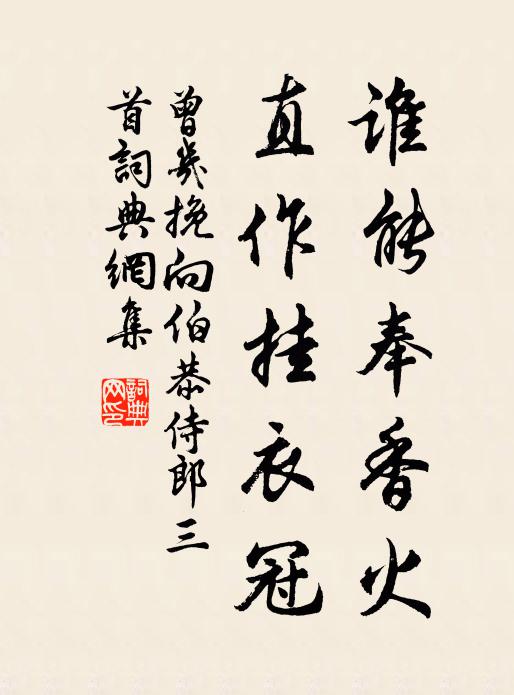 誰能奉香火
直作挂衣冠
曾幾挽向伯恭侍郎三
首詞典網集
詞典網印